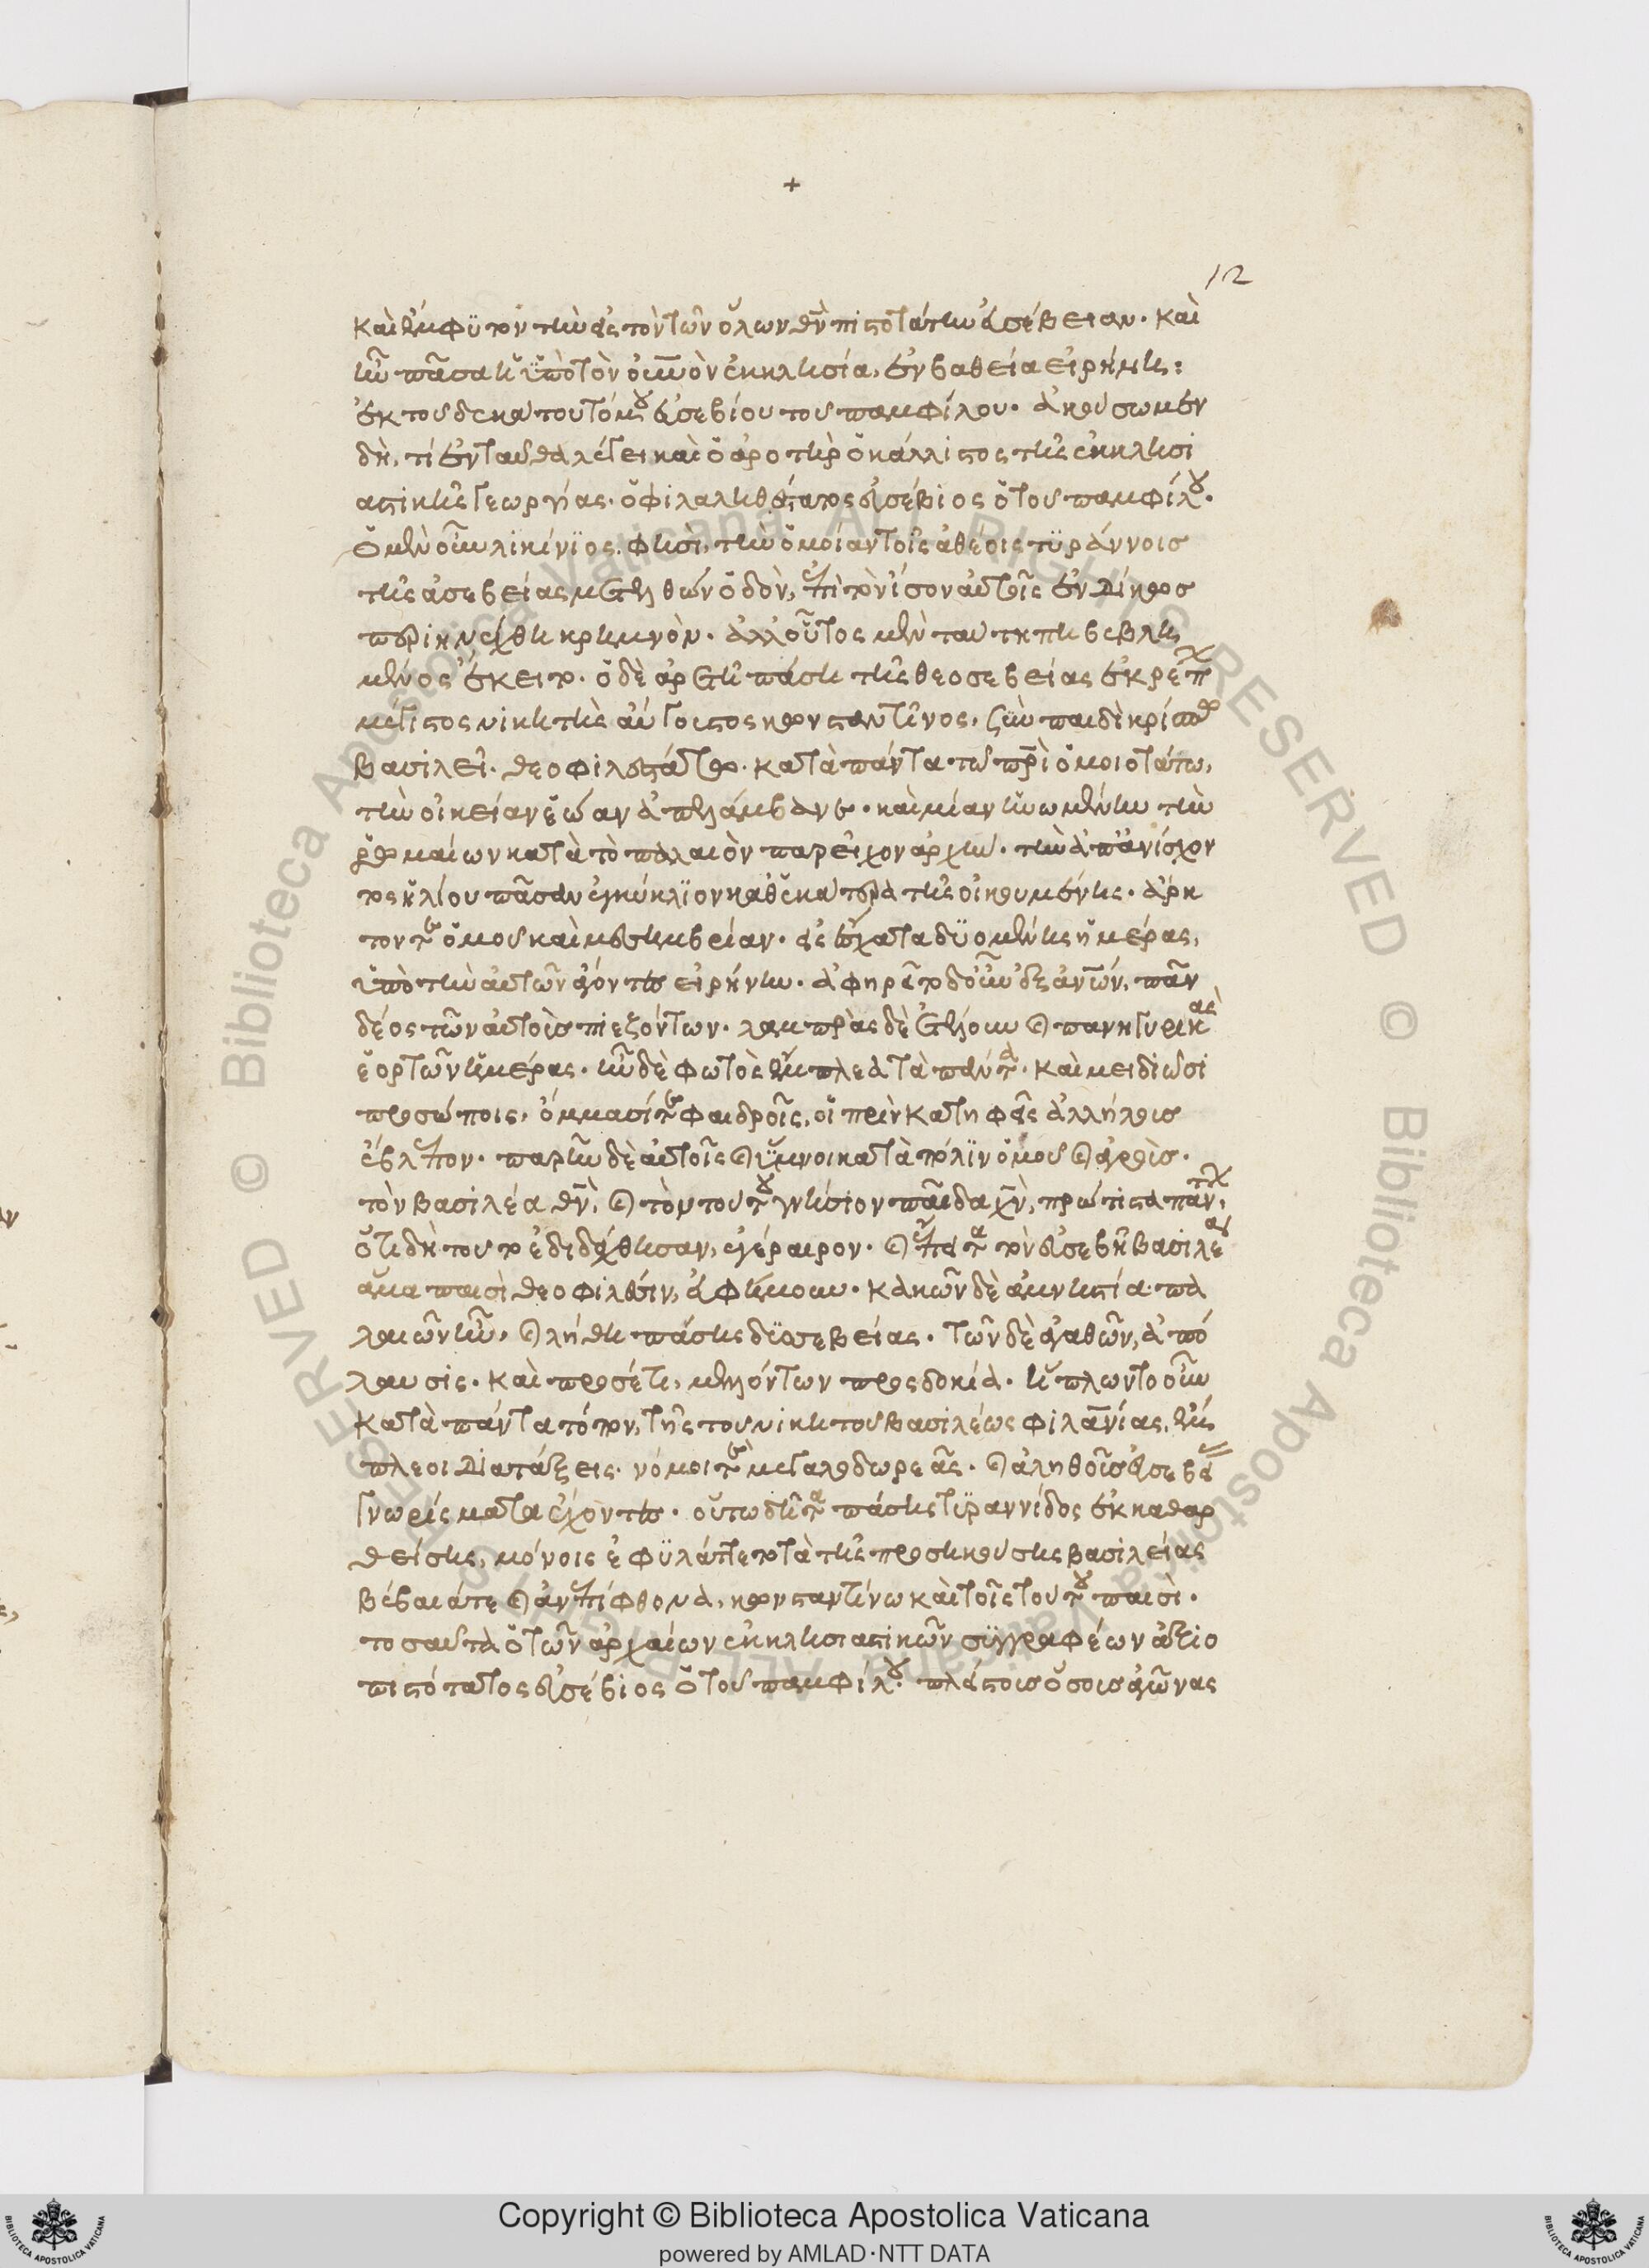 +
12
καὶ ἔμφϋτον τὴν εἰς τὸν τῶν ὅλων θν̄ πιστοτάτην εὐσέβειαν. καὶ
ἦν πᾶσα ἡ ϋπὸ τὸν οὐν̄ὸν ἐκκλησία, ἐν βαθεία εἰρήνη:
ἐκ τοῦ δεκάτου τόμου εὐσεβίου τοῦ παμφίλου. ἀκούσωμεν
δὴ, τί ἐνταῦθα λέγει καὶ ὁ ἀροτὴρ ὁ κάλλιστος τῆς ἐκκλησι
αστικῆς γεωργίας. ὁ φιλαληθέστατος εὐσέβιος ὁ τοῦ παμφίλου.
ὁ μὲν οὖν λικίνϊος, φησὶ, τὴν ὁμοίαν τοῖς ἀθέοις τϋράννοις
τῆς ἀσεβείας μετελθὼν ὁδὸν, ἐπὶ τὸν ἴσον αὐτοῖς ἐνδίκως
περιηνέχθη κρημνὸν. ἀλλ' οὗτος μὲν ταύτη πη βεβλη
μένος ἔκειτο. ὁ δὲ ἀρετῆ πάση τῆς θεοσεβείας ἐκπρέπων
μέγιστος νικητὴς αὔγουστος κωνσταντῖνος, σὺν παιδὶ κρίσπω
βασιλεῖ θεοφιλεστάτω. κατὰ πάντα τῶ πρ̄ὶ ὁμοιοτάτω,
τὴν οἰκείαν ἑώαν ἀπελάμβανε. καὶ μίαν ἡνωμένην τὴν
ῥωμαίων κατὰ τὸ παλαιὸν παρεῖχον ἀρχήν. τὴν ἀπ' ἀνίσχον
τος ἡλίου πᾶσαν ἐγκύκλϊον καθ' ἑκάτερα τῆς οἰκουμένης. ἄρκ
τον τε ὁμοῦ καὶ μεσημβρίαν. εἰς ἔσχατα δϋομένης ἡμέρας,
ϋπὸ τὴν αὐτῶν ἄγοντες εἰρήνην. ἀφηρεῖτο δ' οὖν ἐξ ἀν̄ων, πᾶν
δέος τῶν αὐτοὺς πιεζόντων. λαμπρὰς δὲ ἐτέλουν καὶ πανηγυρικὰς
ἑορτῶν ἡμέρας. ἦν δὲ φωτὸς ἔμπλεα τὰ πάντα. καὶ μειδιῶσι
προσώποις, ὄμμασί τε φαιδροῖς, οἱ πρὶν κατηφεῖς ἀλλήλους
ἔβλεπον. παρῆν δὲ αὐτοῖς καὶ ὕμνοι κατὰ πόλϊν ὁμοῦ καὶ ἀγροὺς.
τὸν βασιλέα θν̄, καὶ τὸν τούτου γνήσιον παῖδα χν̄, πρώτιστα πάντων,
ὅτι δὴ τοῦτο ἐδιδάχθησαν, ἐγέραιρον. καὶ ἔπειτα τὸν εὐσεβῆ βασιλέα
ἅμα παισὶ θεοφιλέσιν, εὐφήμουν. κακῶν δὲ ἀμνηστία παλ
λαιῶν ἦν, καὶ λήθη πάσης δυσσεβείας. τῶν δὲ ἀγαθῶν, ἀπό
λαυσις. καὶ προσέτι, μελλόντων προσδοκία. ἥπλωντο οὖν
κατὰ πάντα τόπον, τῆς τοῦ νικητοῦ βασιλέως φιλαν̄ίας, ἔμ
πλεοι διατάξεις. νόμοι τε μεγαλοδωρεᾶς. καὶ ἀληθοῦς εὐσεβείας
γνωρίσματα ἔχοντες. οὕτω δῆτα πάσης τϋραννίδος ἐκκαθαρ
θείσης, μόνοις ἐφϋλάττετο τὰ τῆς προσηκούσης βασιλείας
βέβαιά τε καὶ ἀνεπίφθονα, κωνσταντίνω καὶ τοῖς τούτου παισὶ.
τοσαῦτα ὁ τῶν ἀρχαίων ἐκκλησιαστικῶν σϋγγραφέων ἀξιο
πιστότατος εὐσέβιος ὁ τοῦ παμφίλου. πλείστοις ὅσοις ἀγῶνας
Copyright © Biblioteca Apostolica Vaticana
powered by AMLAD·NTT DATA